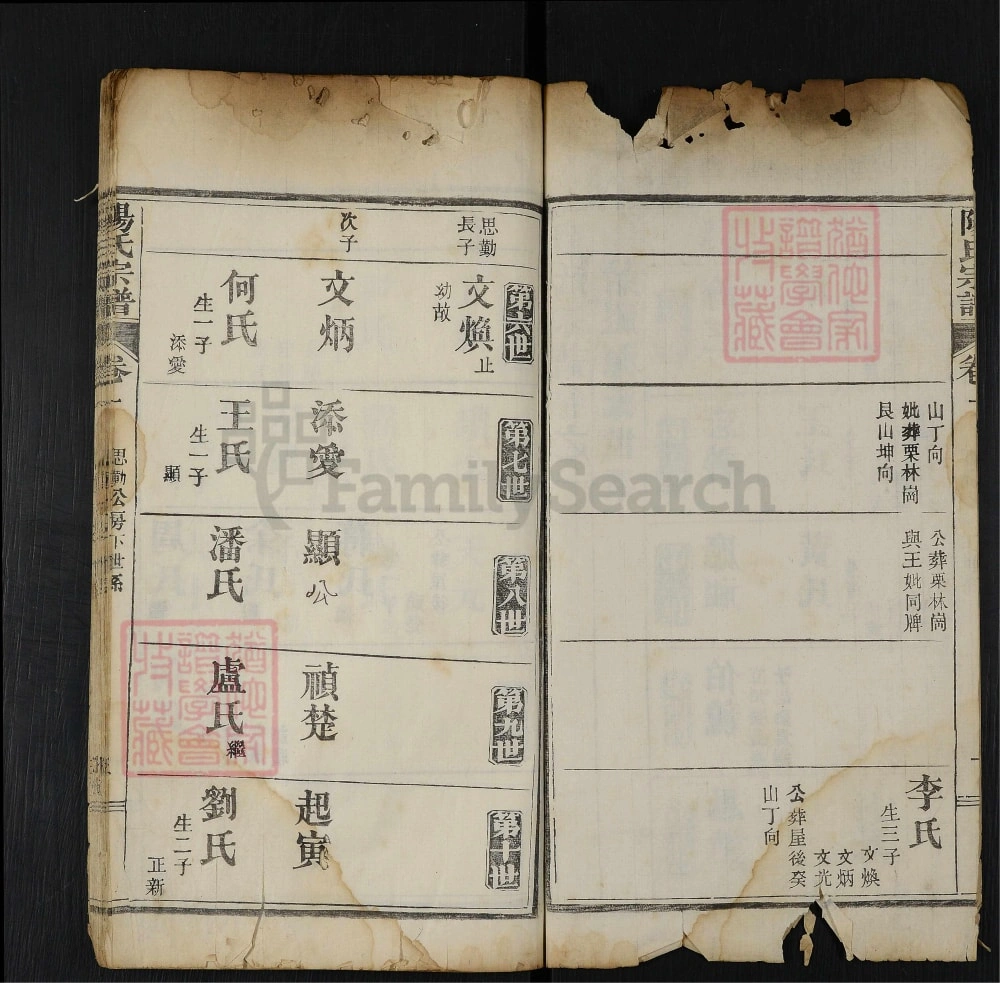 山丁向
妣葬栗林崗
艮山坤向
公葬栗林崗
與王妣同牌
李氏
生三子
文煥
文炳
文光
公葬屋後癸
山丁向
思勤
長子
次子
第六世
文煥
止
幼故
文炳
何氏
生一子
添愛
第七世
添愛
王氏
生一子
顯
第八世
顯公
潘氏
第九世
禎楚
盧氏
繼
第十世
起寅
劉氏
生二子
正新
陽氏宗譜
卷一
思勤公房下世系
FamilySearch